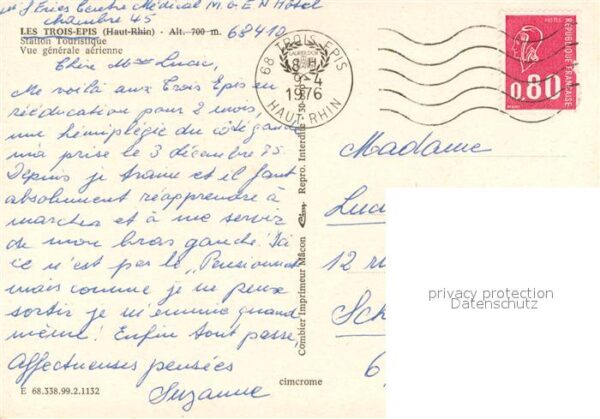 Centre Médical M.G.E.N Hôtel
chambre 45
LES TROIS-EPIS (Haut-Rhin) - Alt. 700 m. 68410
Station Touristique
Vue générale aérienne
Chère Mme Lucie,
Me voilà aux Trois Epis en
rééducation pour 2 mois,
une hémiplégie du côté gauche
m'a prise le 3 décembre 75.
Depuis je traine et il faut
absolument réapprendre à
marcher et à me servir
de mon bras gauche. Ici
ce n'est pas le "Pensionnat"
mais comme je ne peux
sortir je m'ennuie quand
même! Enfin tout passe,
Affectueuses pensées
Suzanne
E 68.338.99.2.1132
cimcrome
Combier Imprimeur Mâcon Cim Repro. Interdite
68 TROIS-EPIS
8 H
9-4
1976
HAUT-RHIN
POSTES
REPUBLIQUE FRANÇAISE
0,80
Madame
Luci
12 ru
Sch
6
privacy protection
Datenschutz